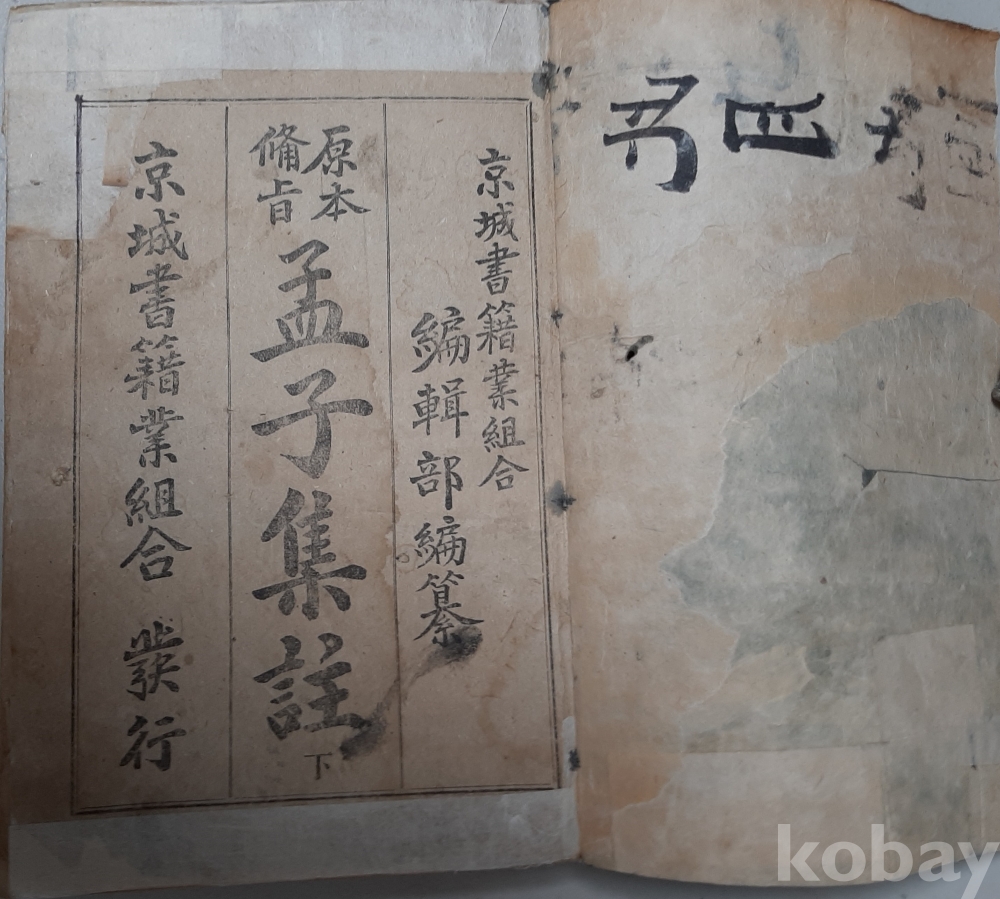 京城書籍業組合
編輯部編纂
原本
備旨
孟子集註
下
京城書籍業組合 發行
kobay